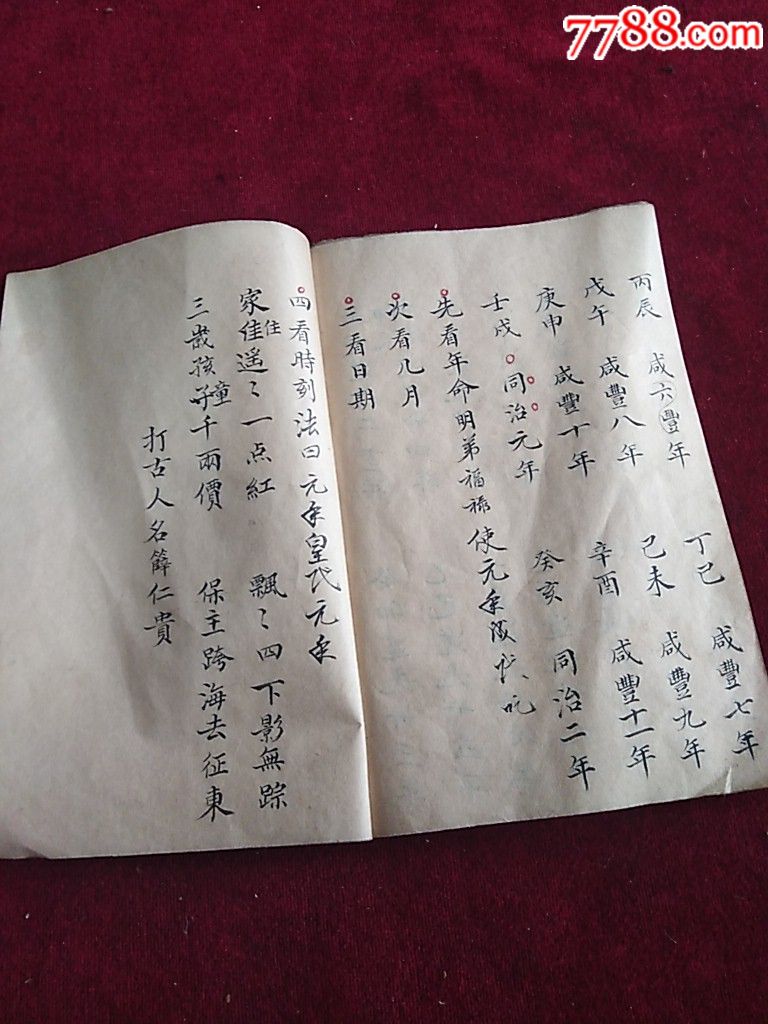 7788.com
丙辰 咸六豐年 丁巳 咸豐七年
戊午 咸豐八年 己未 咸豐九年
庚申 咸豐十年 辛酉 咸豐十一年
壬戌 同治元年 癸亥 同治二年
先看年命明弟福祿使元
次看几月
三看日期
四看時刻法曰元皇代元
家佳住遥〻一点紅 飄〻四下影無踪
三歲孩子童千兩價 保主跨海去征東
打古人名薛仁貴